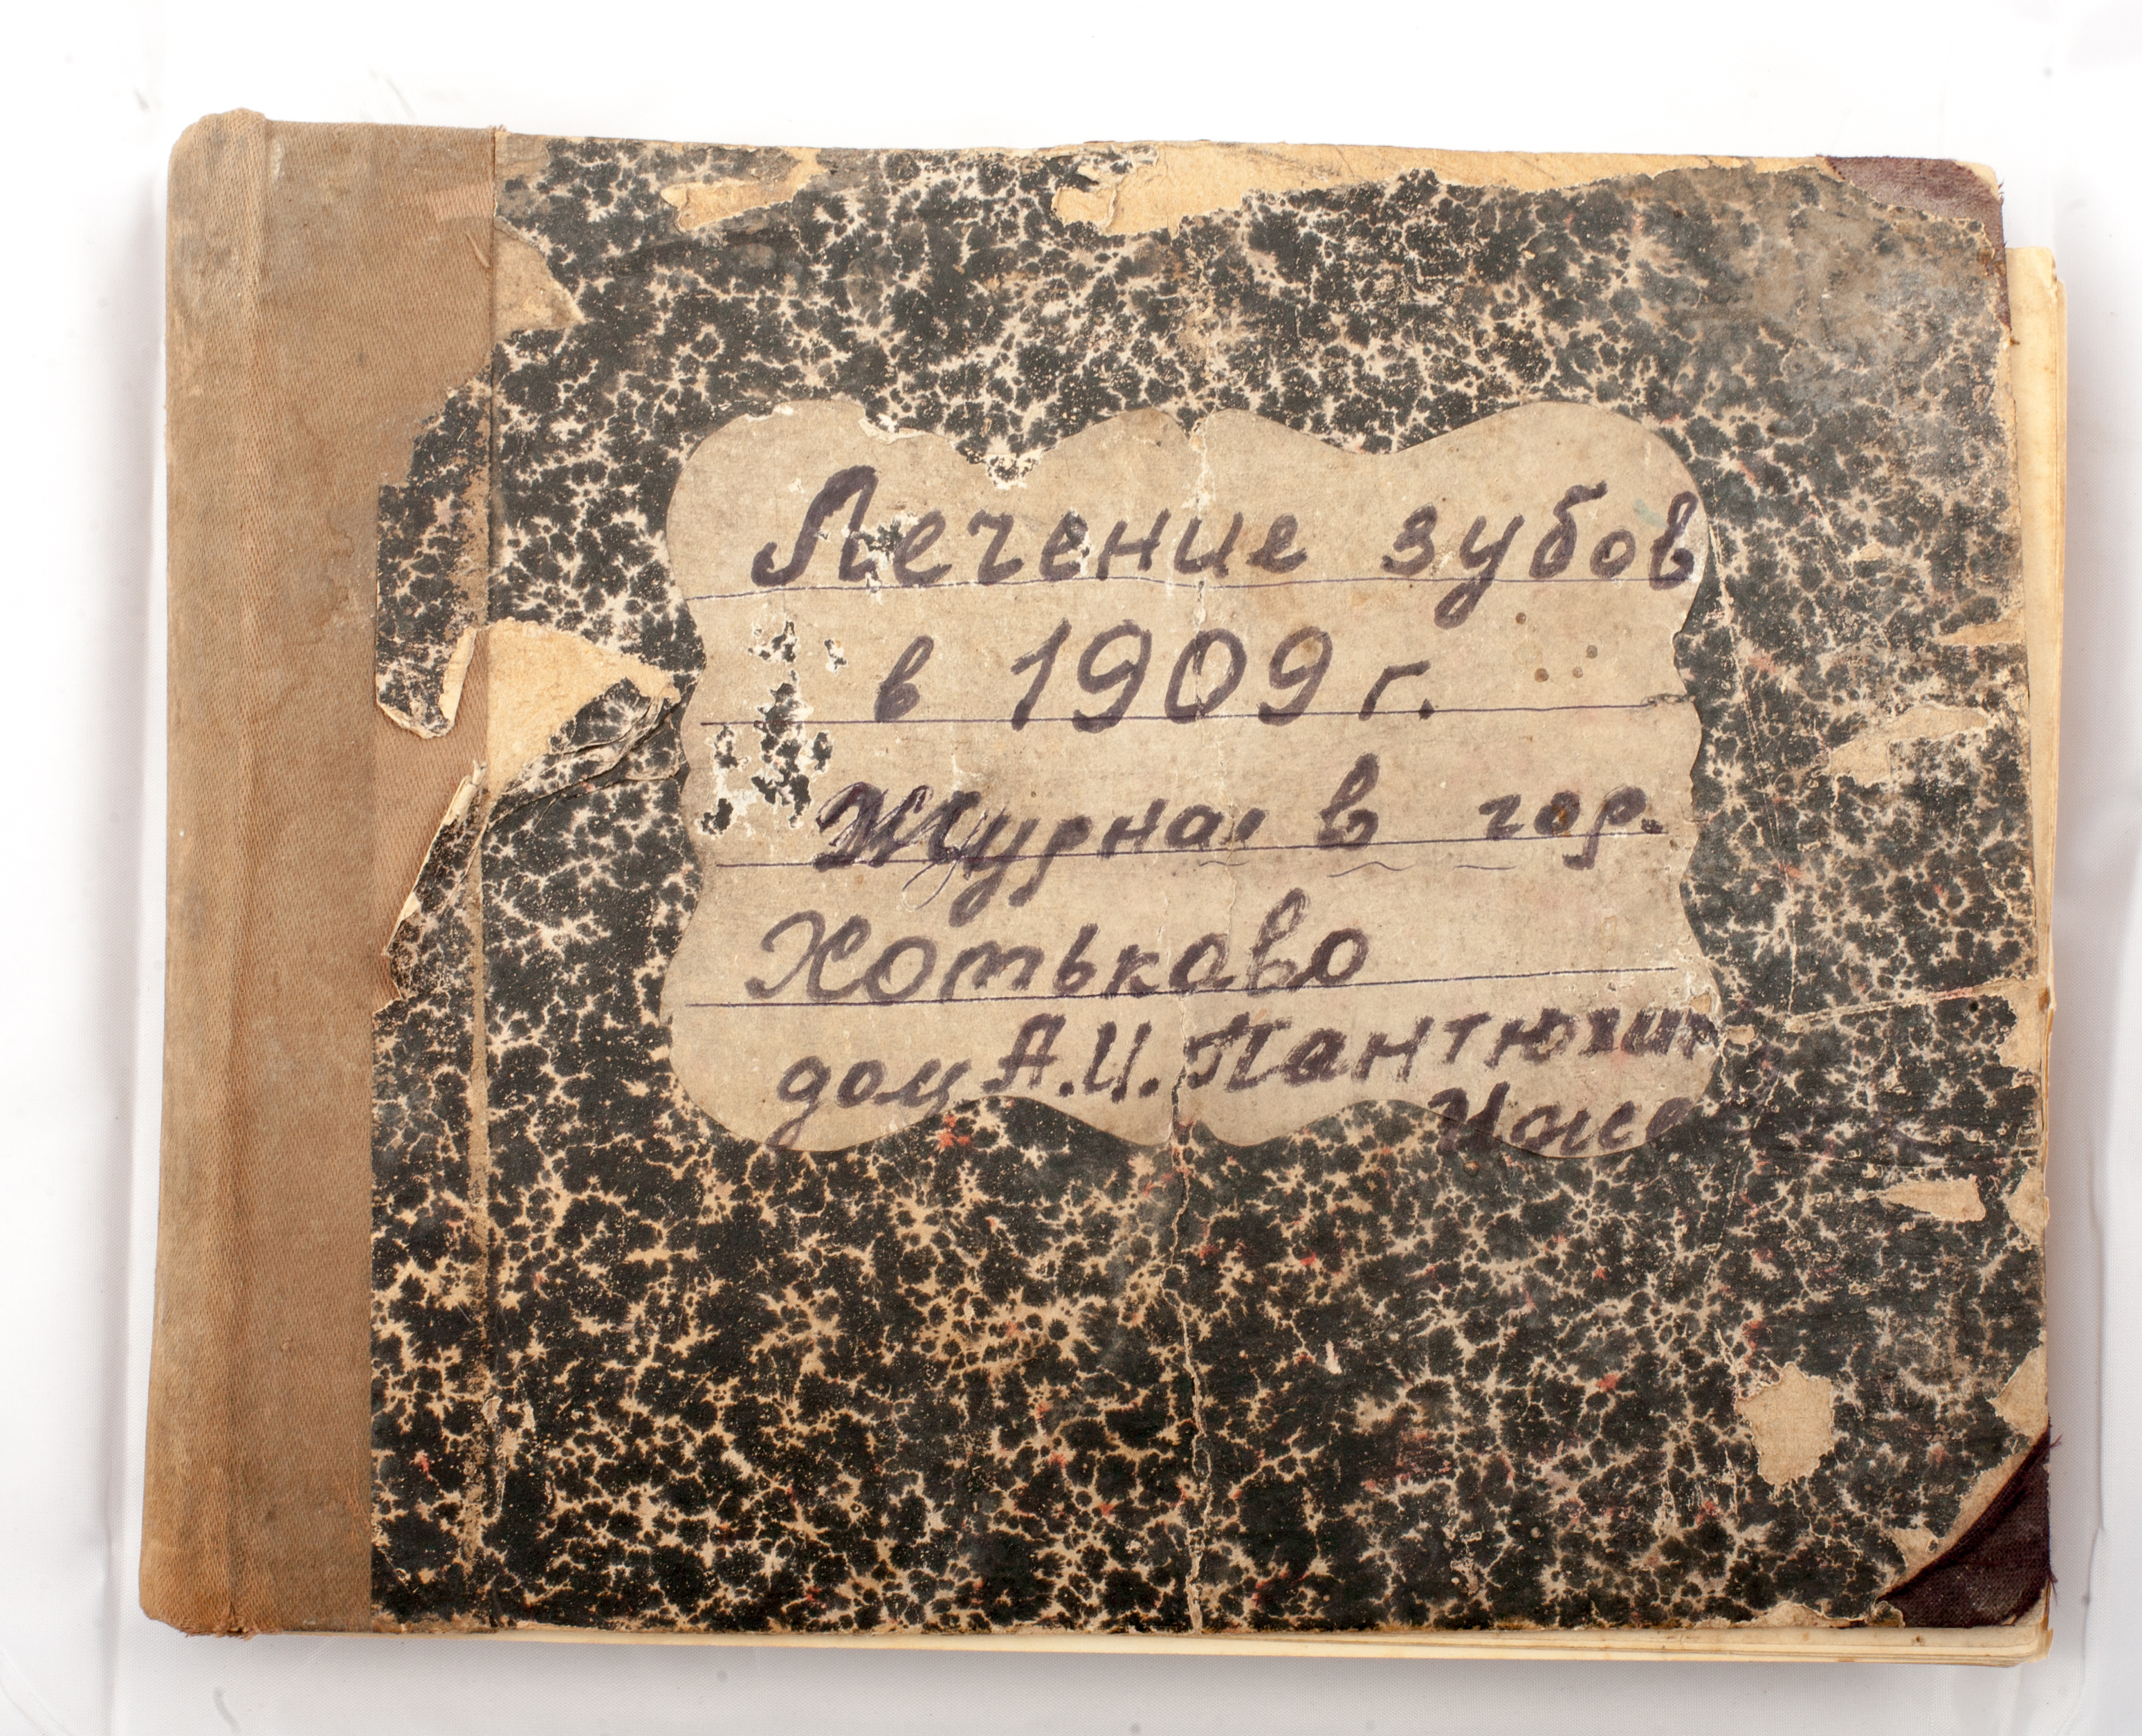 Лечение зубов
в 1909 г.
Журнал в гор.
Хотьково
дом А.И. Пантюхин